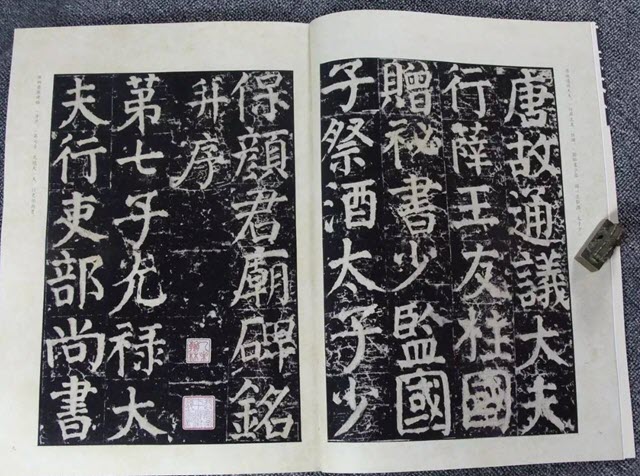 唐故通議大夫
行薛王友柱國
贈祕書少監國
子祭酒太子少
保顏君廟碑銘
并序
苐七子光祿大
夫行吏部尚書